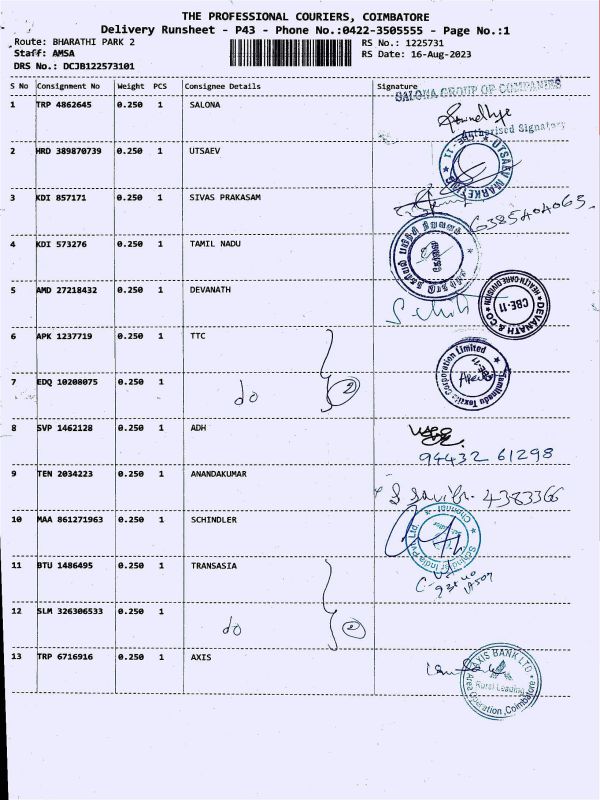 THE PROFESSIONAL COURIERS, COIMBATORE
Delivery Runsheet - P43 - Phone No.:0422-3505555 - Page No.:1
Route: BHARATHI PARK 2 RS No.: 1225731
Staff: AMSA RS Date: 16-Aug-2023
DRS No.: DCJB122573101
S No Consignment No Weight PCS Consignee Details Signature
SALONA GROUP OF COMPANIES
1 TRP 4862645 0.250 1 SALONA
Authorised Signatory
2 HRD 389870739 0.250 1 UTSAEV
UTSAEV MARKETING
CBE - 11
3 KDI 857171 0.250 1 SIVAS PRAKASAM
6385404063
4 KDI 573276 0.250 1 TAMIL NADU
5 AMD 27218432 0.250 1 DEVANATH
DEVANATH & CO
HEALTH CARE DIVISION
CBE-11
6 APK 1237719 0.250 1 TTC
Tamilnadu Textile Corporation Limited
7 EDQ 10208075 0.250 1 do 2
8 SVP 1462128 0.250 1 ADH
94432 61298
9 TEN 2034223 0.250 1 ANANDAKUMAR
4383366
10 MAA 861271963 0.250 1 SCHINDLER
Schindler India Pvt Ltd
Chennai
11 BTU 1486495 0.250 1 TRANSASIA
12 SLM 326306533 0.250 1 do 2
13 TRP 6716916 0.250 1 AXIS
AXIS BANK LTD
Rural Lending
Area Operation, Coimbatore